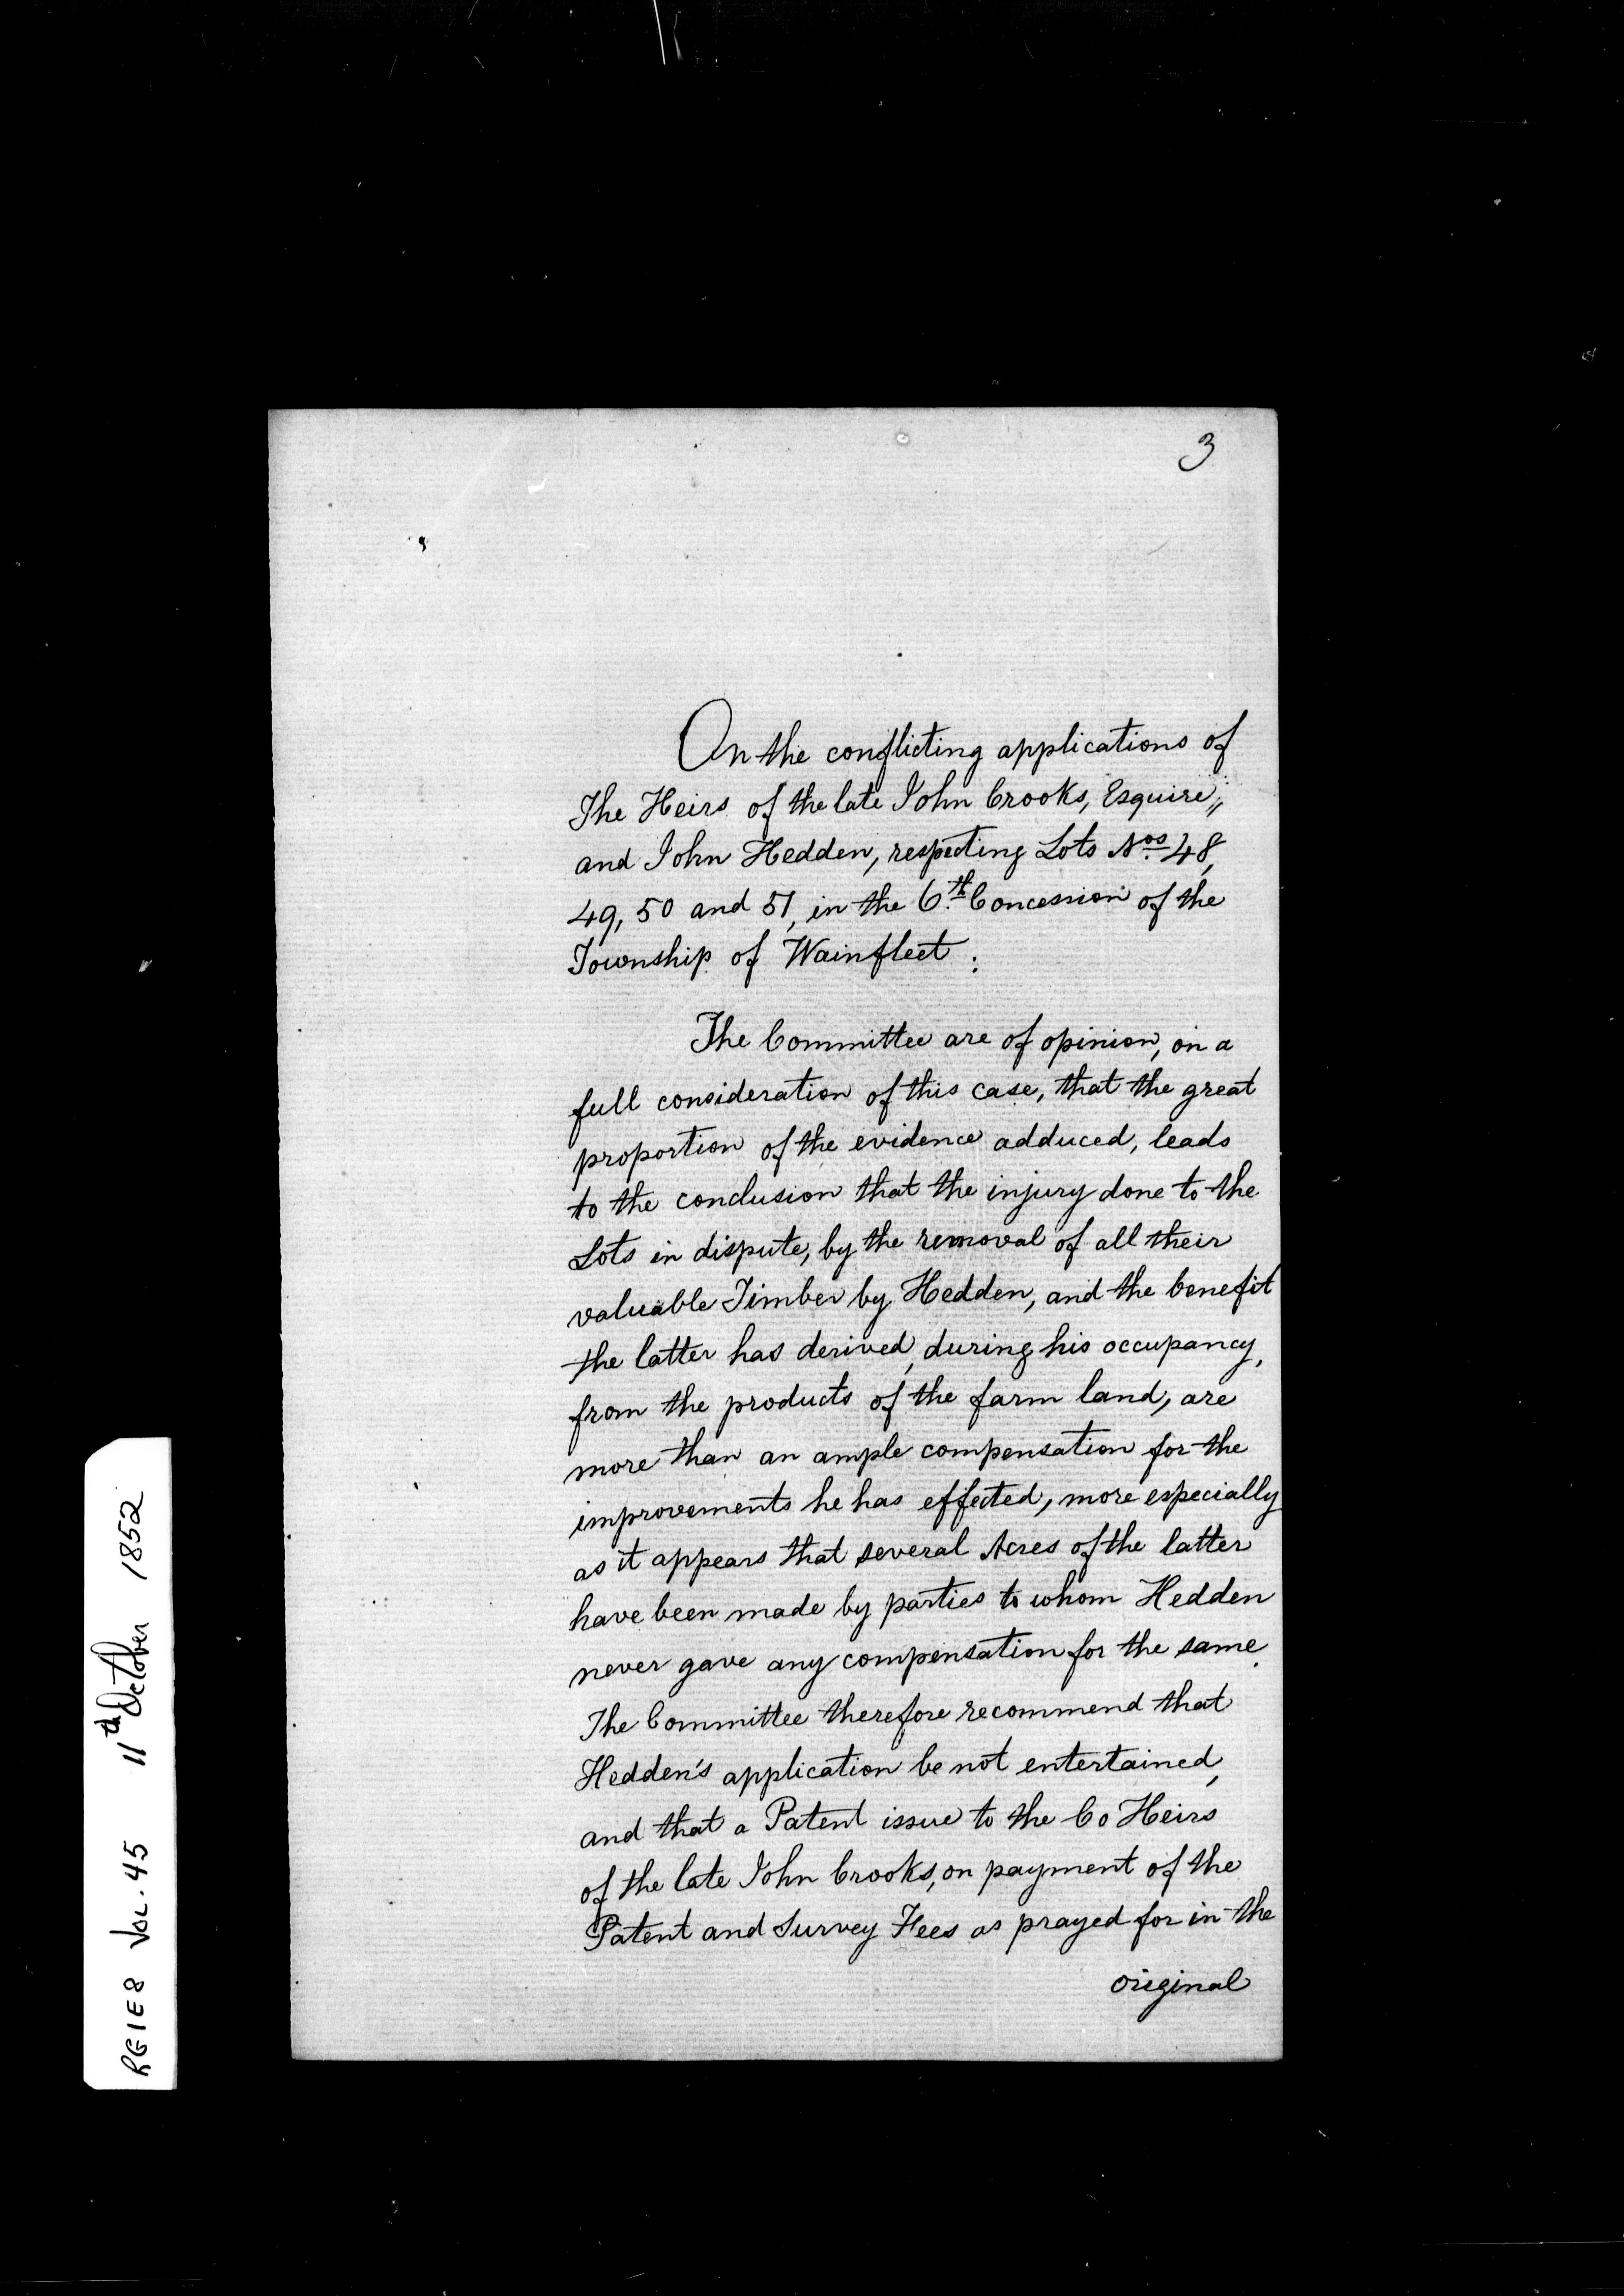 3
On the conflicting applications of
The Heirs of the late John Crooks, Esquire,
and John Hedden, respecting Lots Nos. 48,
49, 50 and 51, in the 6th. Concession of the
Township of Wainfleet:
The Committee are of opinion, on a
full consideration of this case, that the great
proportion of the evidence adduced, leads
to the conclusion that the injury done to the
Lots in dispute, by the removal of all their
valuable Timber by Hedden, and the benefit
the latter has derived, during his occupancy,
from the products of the farm land, are
more than an ample compensation for the
improvements he has effected, more especially
as it appears that several Acres of the latter
have been made by parties to whom Hedden
never gave any compensation for the same.
The Committee therefore recommend that
Hedden's application be not entertained,
and that a Patent issue to the Co Heirs
of the late John Crooks, on payment of the
Patent and Survey Fees as prayed for in the
original
RG1E8 VOL. 45 11th October 1852